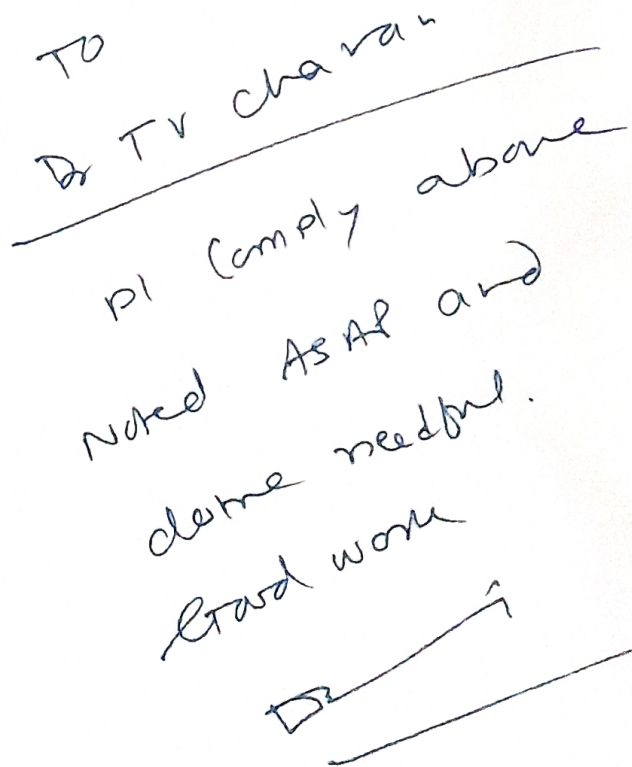 To
Dr TV charan
pl comply above
Noted ASAP and
done needful.
Good work